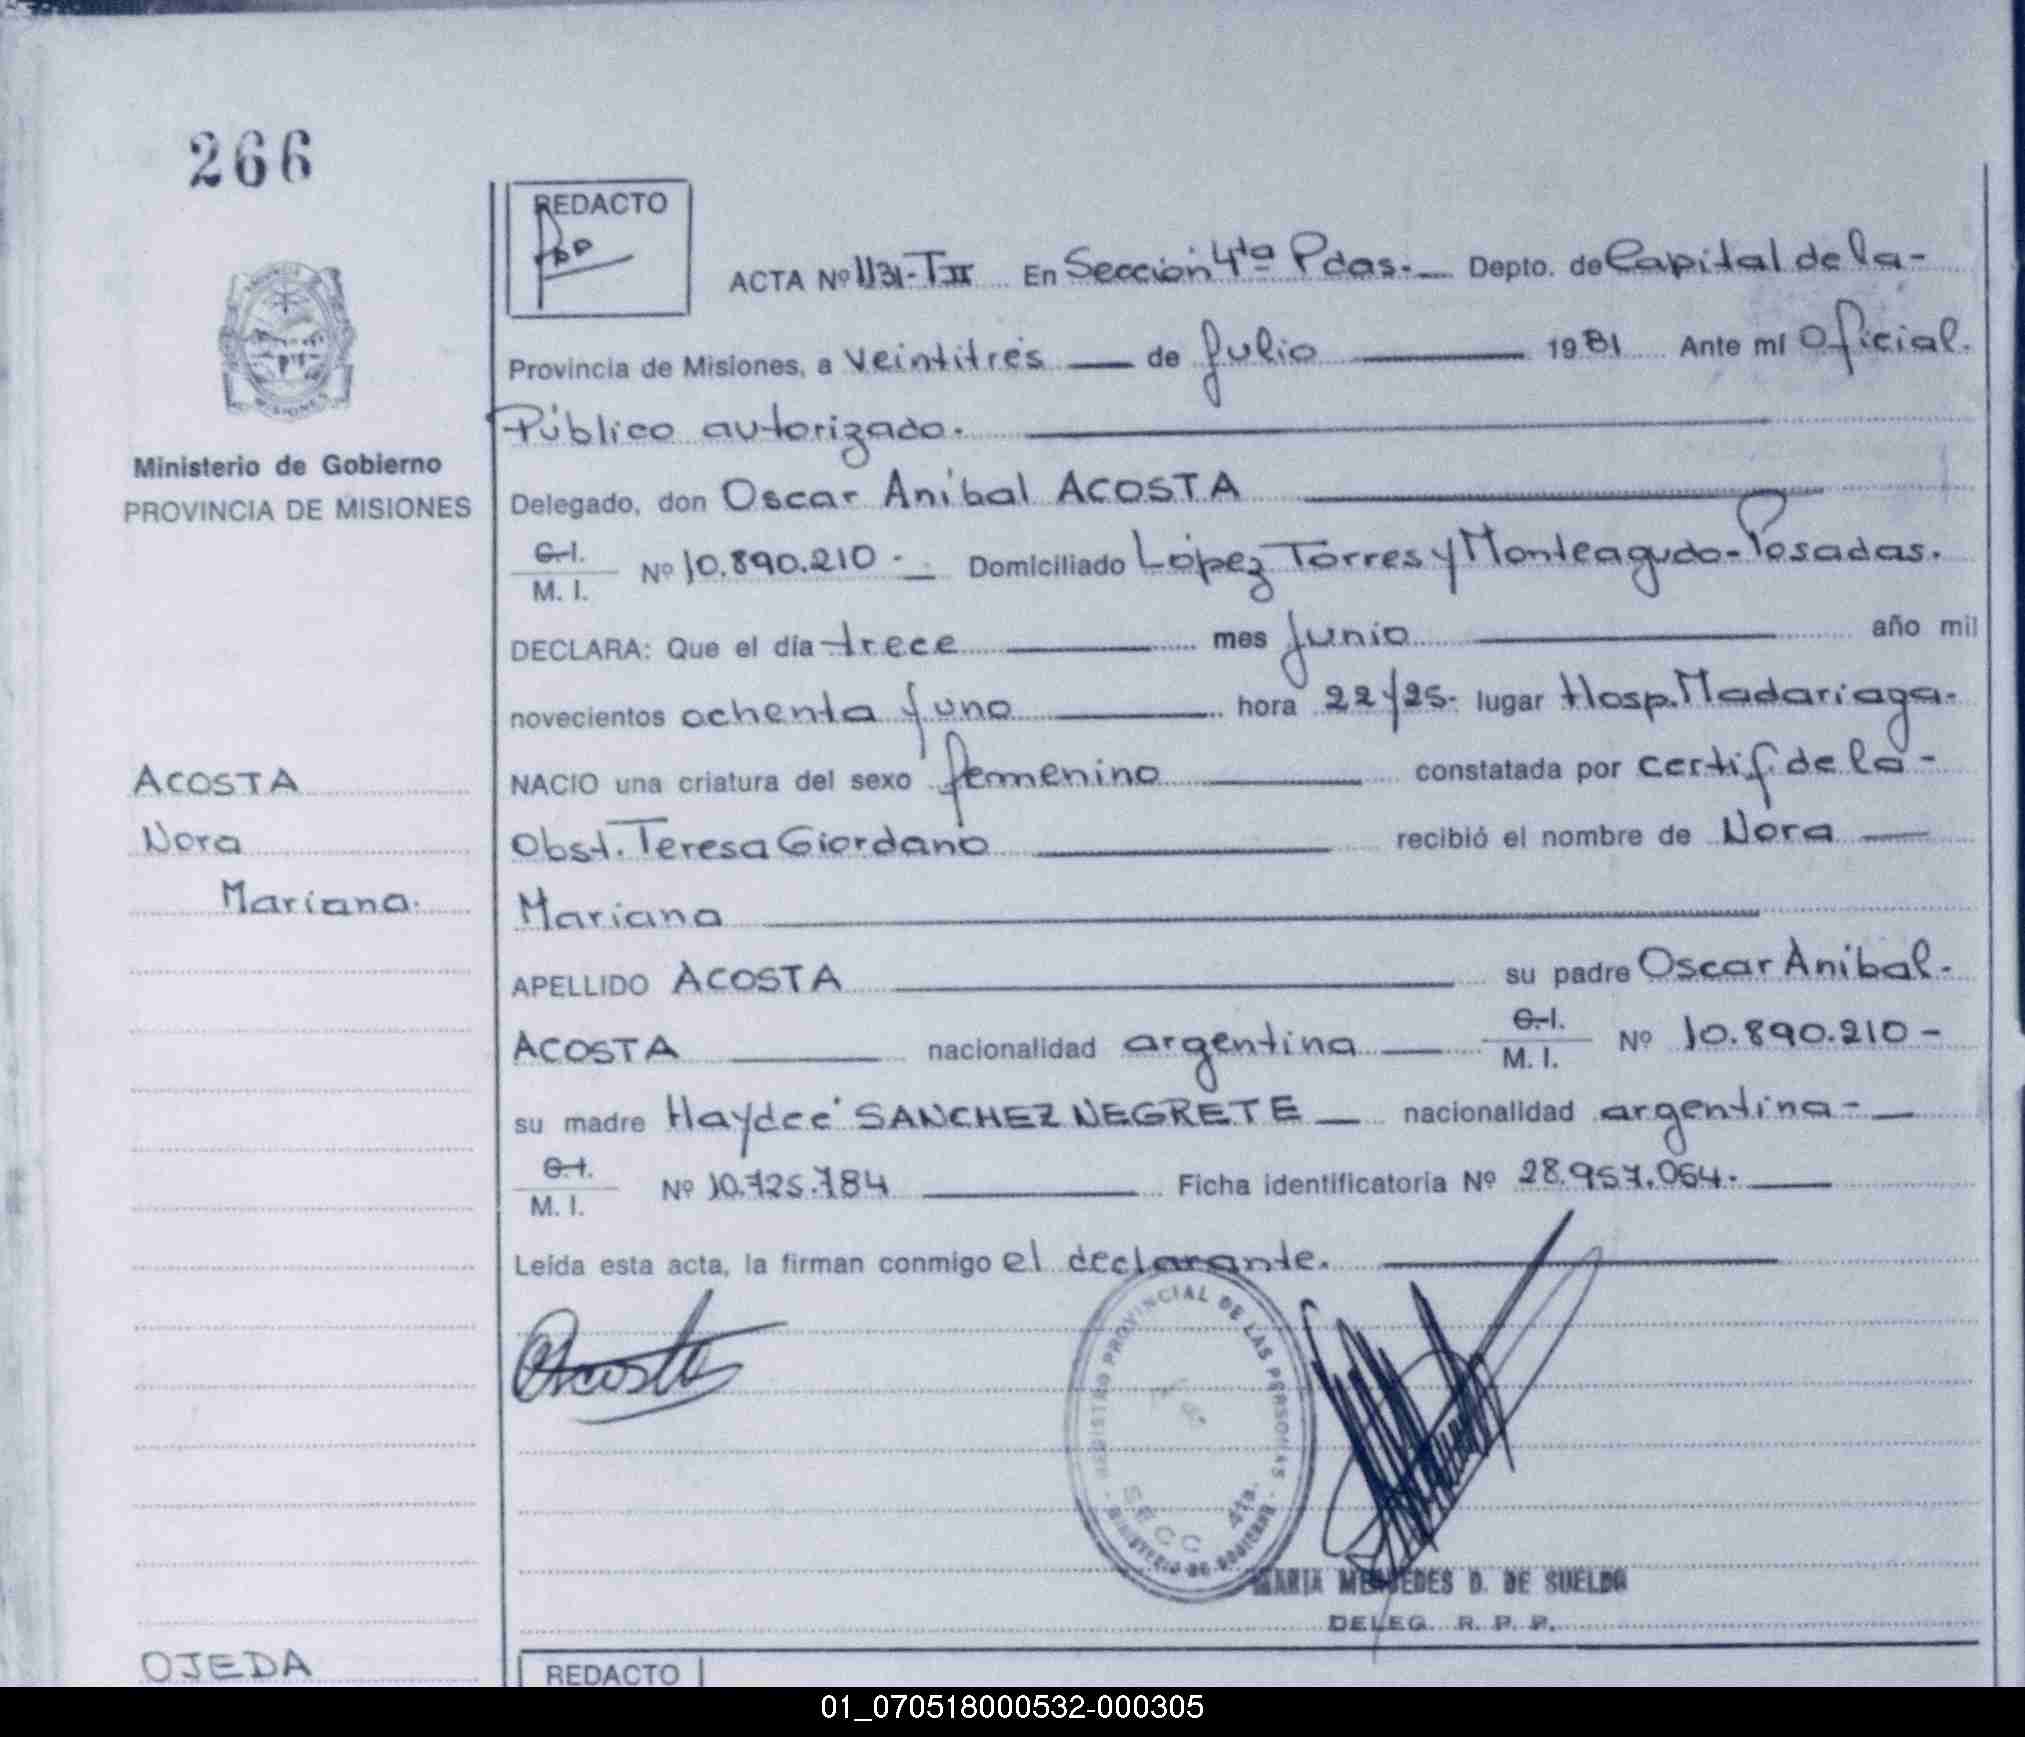 266
REDACTO
ACTA Nº 1131-TII En Sección 4ta Pdas.- Depto. de Capital de la-
Provincia de Misiones, a veintitrés de Julio 1981 Ante mí Oficial.
Público autorizado.
Ministerio de Gobierno
PROVINCIA DE MISIONES
Delegado, don Oscar Aníbal ACOSTA
C.I.
M. I. Nº 10.890.210.- Domiciliado López Torres y Monteagudo-Posadas.
DECLARA: Que el día trece mes Junio año mil
novecientos ochenta y uno hora 22/25.- lugar Hosp. Madariaga.
ACOSTA
Nora
Mariana.
NACIO una criatura del sexo femenino constatada por certif. de la-
Obst. Teresa Giordano recibió el nombre de Nora
Mariana
APELLIDO ACOSTA su padre Oscar Aníbal.
ACOSTA nacionalidad argentina C.I. M. I. Nº 10.890.210-
su madre Haydeé SANCHEZ NEGRETE nacionalidad argentina-
C.I.
M. I. Nº 10.725.784 Ficha identificatoria Nº 28.957.064.-
Leída esta acta, la firman conmigo el declarante.
Acosta
REGISTRO PROVINCIAL DE LAS PERSONAS
SECC 4ta.
MINISTERIO DE GOBIERNO
MARIA MERCEDES D. DE SUELDO
DELEG. R. P. P.
OJEDA
REDACTO
01_070518000532-000305